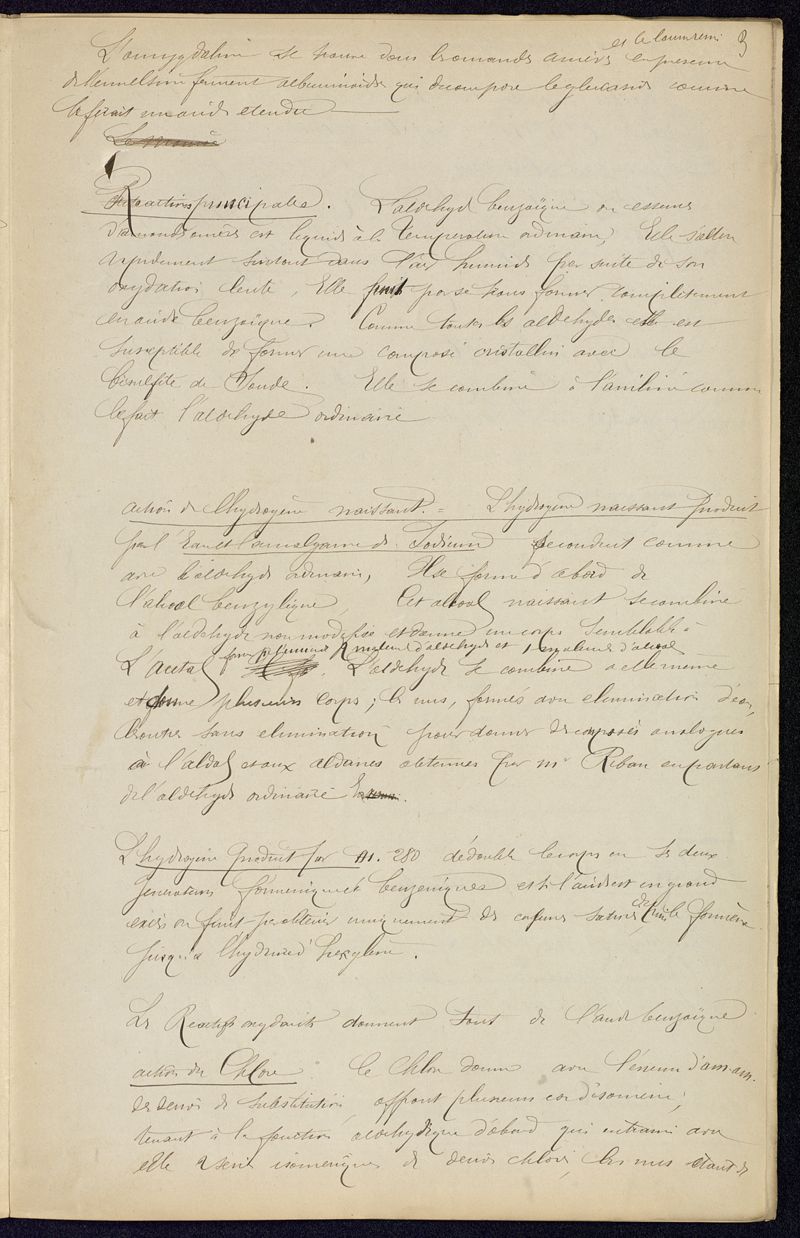 et le laurier 3
L'amygdaline se trouve dans les amandes amères en presence
de l'emulsine ferment albuminoïde qui decompose le glucoside comme
le ferait un acide etendu
Reactions principales. L'aldehyde benzoïque ou essence
d'amandes amères est liquide à la temperature ordinaire, Elle s'altère
rapidement surtout dans l'air humide par suite de son
oxydation lente, Elle finit par se transformer complètement
en acide benzoïque. Comme toutes les aldehydes elle est
susceptible de former une composé cristallin avec le
bisulfite de Soude. Elle se combine à l'aniline comme
le fait l'aldehyde ordinaire
action de l'hydrogène naissant. = L'hydrogène naissant produit
par l'Eau et l'amalgame de Sodium se conduit comme
avec l'aldehyde ordinaire, Il se forme d'abord de
l'alcool benzylique, Cet alcool naissant se combine
à l'aldehyde non modifié et donne un corps semblable à
L'acetal formé 1 molecule d'aldehyde et 1 molecule d'alcool
L'aldehyde se combine a elle même
et forme plusieurs corps; les uns, formés avec elimination d'eau,
les autres sans elimination pour donner des composés analogues
à l'aldol et aux aldanes obtenues par Mr Riban en partant
de l'aldehyde ordinaire
L'hydrogène produit par HI. 280 dédouble le corps en ses deux
generateurs formenique et benzenique et si l'acide est en grand
excès on finit par obtenir uniquement des carbures saturés depuis le formène
jusqu'à l'hydrure d'hexylène.
Les Reactifs oxydants donnent tout de l'acide benzoïque
action du Chlore Le Chlore donne avec l'essence d'am. am.
des derivés de substitution offrant plusieurs cas d'isomerie;
tenant à la fonction aldehydique d'abord qui entraine avec
elle 2 series isomeriques de derivés chlorés, les uns etant de